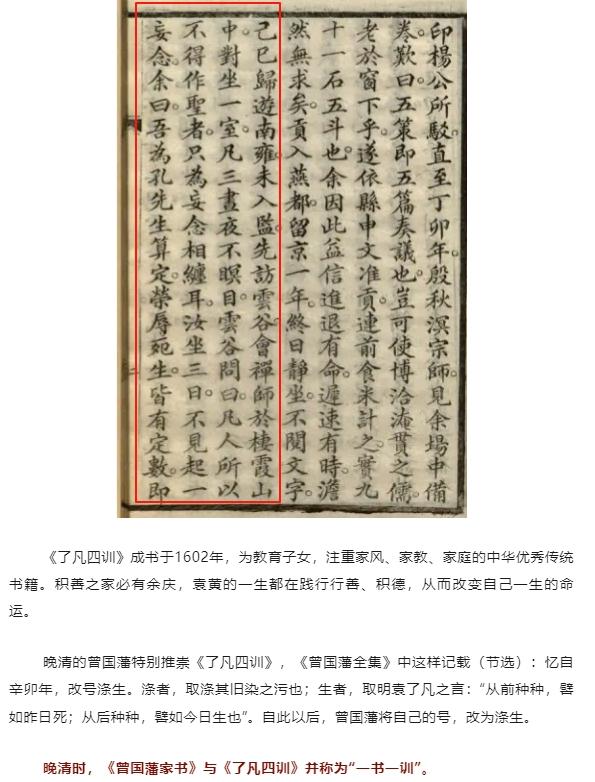 印楊公所駁。直至丁卯年。殷秋溟宗師。見余場中備
卷。歎曰。五策即五篇奏議也。豈可使博洽淹貫之儒。
老於窗下乎。遂依縣申文准貢。連前食米計之。實九
十一石五斗也。余因此益信進退有命。遲速有時。澹
然無求矣。貢入燕都。留京一年。終日靜坐。不閱文字。
己巳歸。遊南雍。未入監。先訪雲谷會禪師於棲霞山
中。對坐一室。凡三晝夜不瞑目。雲谷問曰。凡人所以
不得作聖者。只為妄念相纏耳。汝坐三日。不見起一
妄念。余曰。吾為孔先生算定。榮辱死生。皆有定數。即
《了凡四训》成书于1602年，为教育子女，注重家风、家教、家庭的中华优秀传统
书籍。积善之家必有余庆，袁黄的一生都在践行行善、积德，从而改变自己一生的命
运。
晚清的曾国藩特别推崇《了凡四训》，《曾国藩全集》中这样记载（节选）：忆自
辛卯年，改号涤生。涤者，取涤其旧染之污也；生者，取明袁了凡之言：“从前种种，譬
如昨日死；从后种种，譬如今日生也”。自此以后，曾国藩将自己的号，改为涤生。
晚清时，《曾国藩家书》与《了凡四训》并称为“一书一训”。